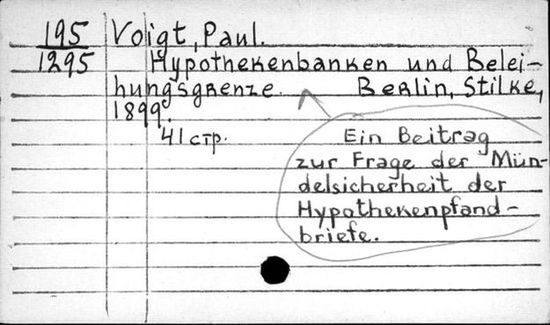 195
1295
Voigt, Paul.
Hypothekenbanken und Belei-
hungsgrenze. Berlin, Stilke,
1899.
41 стр.
Ein Beitrag
zur Frage der Mün-
delsicherheit der
Hypothekenpfand-
briefe.